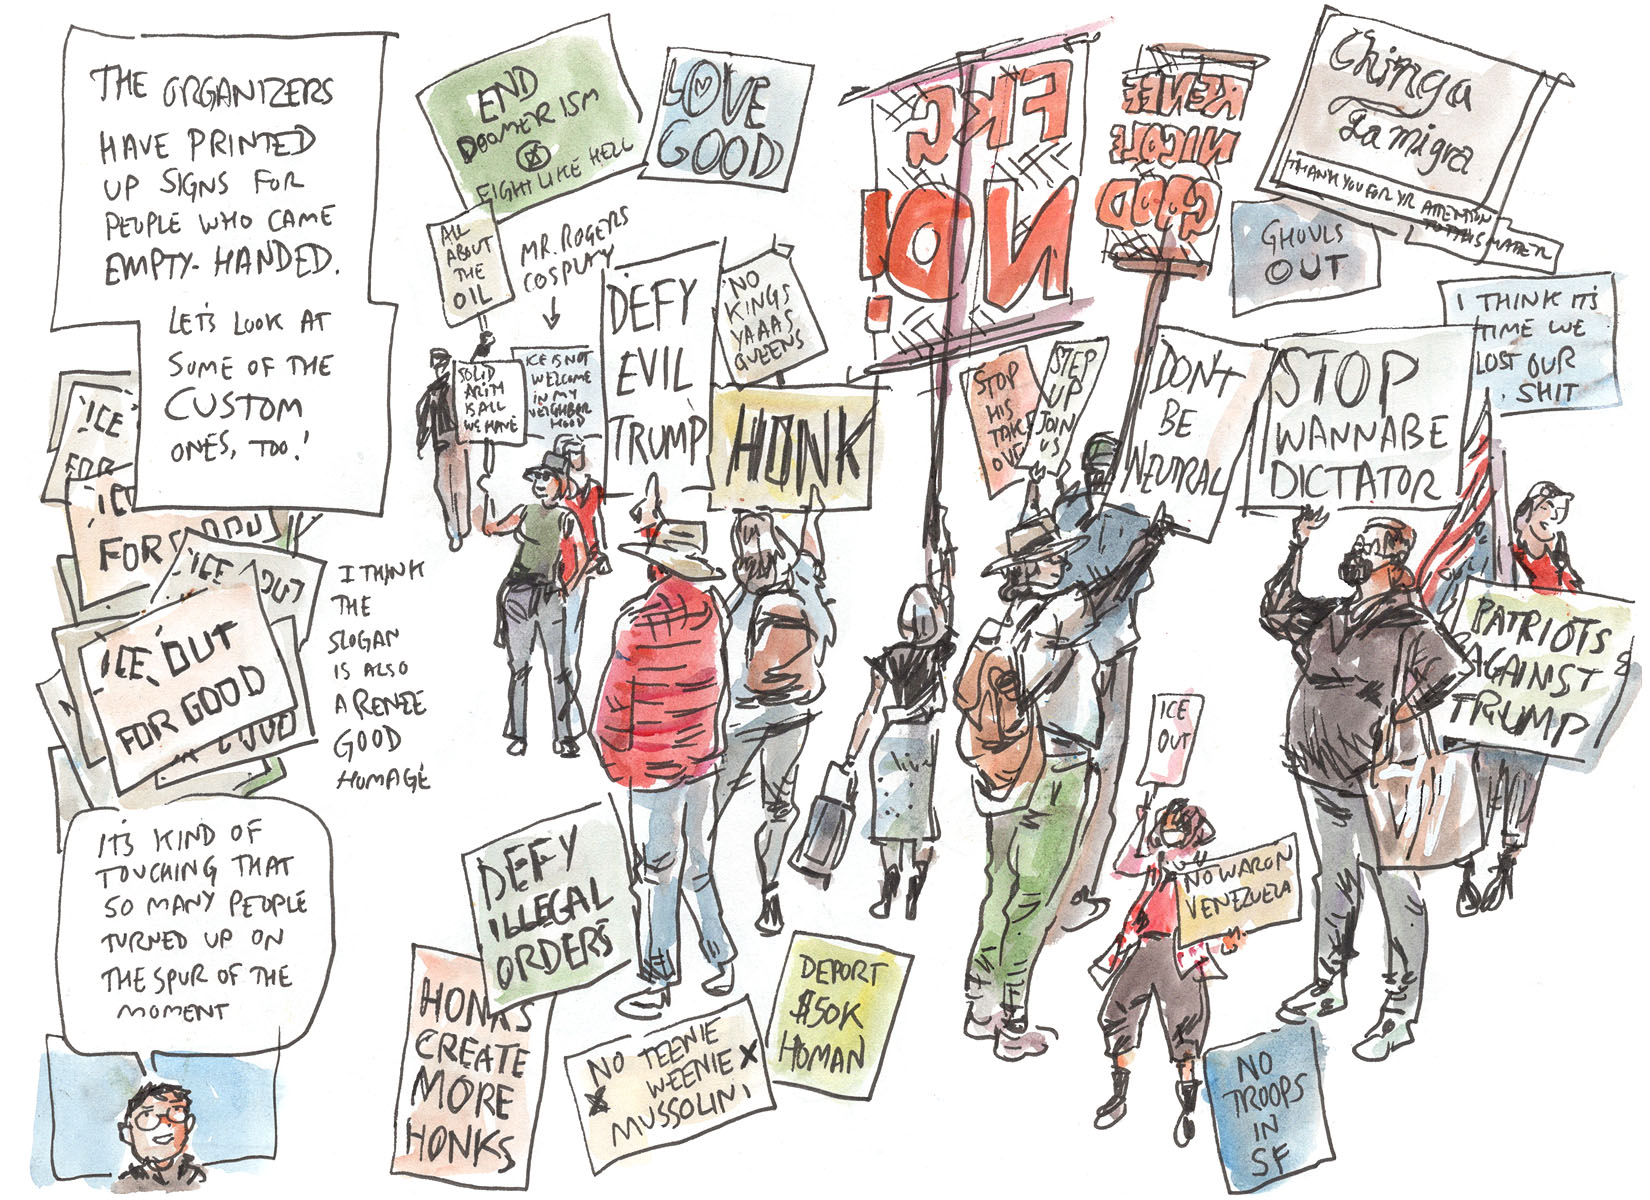 THE ORGANIZERS
HAVE PRINTED
UP SIGNS FOR
PEOPLE WHO CAME
EMPTY-HANDED.
LET'S LOOK AT
SOME OF THE
CUSTOM
ONES, TOO!
'ICE'
FOR
'ICE
FOR GOOD
'ICE' OUT
'ICE' OUT
FOR GOOD
GOOD
I THINK
THE
SLOGAN
IS ALSO
A RENEE
GOOD
HOMAGE
IT'S KIND OF
TOUCHING THAT
SO MANY PEOPLE
TURNED UP ON
THE SPUR OF THE
MOMENT
END
DOOMERISM
FIGHT LIKE HELL
LOVE
GOOD
ALL
ABOUT
THE
OIL
MR. ROGERS
COSPLAY
SOLID
ARITY
IS ALL
WE HAVE
ICE IS NOT
WELCOME
IN MY
NEIGHBOR
HOOD
DEFY
EVIL
TRUMP
NO
KINGS
YAAAS
QUEENS
HONK
FKC
NO!
RENEE
NICOLE
GOOD
Chinga
La Migra
THANK YOU FOR YR ATTENTION
TO THIS MATTER
GHOULS
OUT
I THINK IT'S
TIME WE
LOST OUR
SHIT
STOP
HIS
TAKE
OVE
STEP
UP
JOIN
US
DON'T
BE
NEUTRAL
STOP
WANNABE
DICTATOR
PATRIOTS
AGAINST
TRUMP
ICE
OUT
NO WAR ON
VENEZUELA
DEFY
ILLEGAL
ORDERS
HONKS
CREATE
MORE
HONKS
NO TEENIE
WEENIE
MUSSOLINI
DEPORT
$50K
HOMAN
NO
TROOPS
IN
SF